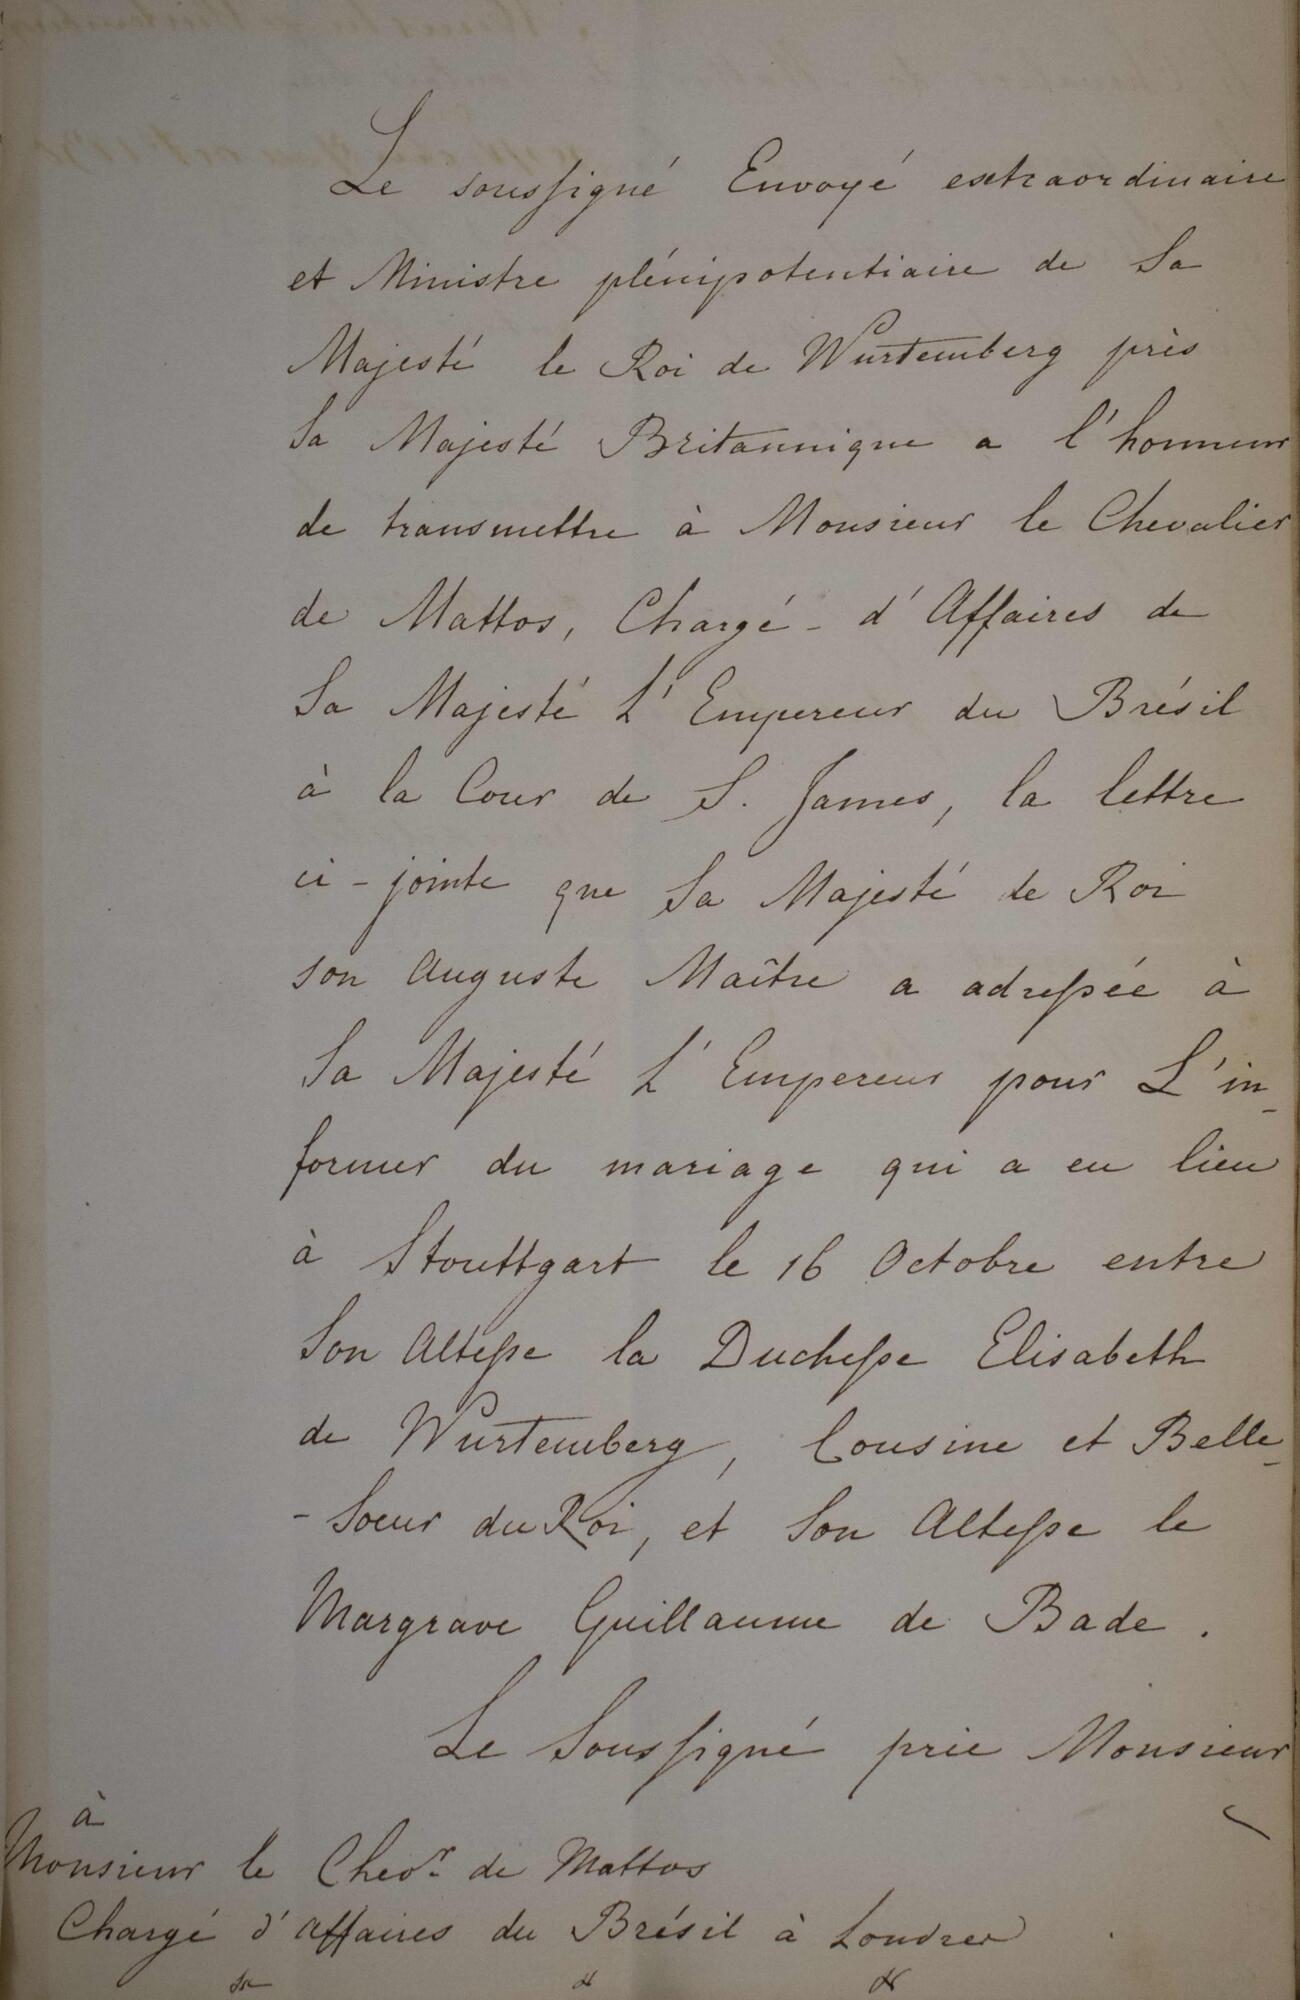 Le soussigné Envoyé extraordinaire
et Ministre plénipotentiaire de Sa
Majesté le Roi de Wurtemberg près
Sa Majesté Britannique a l'honneur
de transmettre à Monsieur le Chevalier
de Mattos, Chargé-d'Affaires de
Sa Majesté L'Empereur du Brésil
à la Cour de S. James, la lettre
ci-jointe que Sa Majesté le Roi
son Auguste Maître a adressée à
Sa Majesté L'Empereur pour L'in-
former du mariage qui a eu lieu
à Stouttgart le 16 Octobre entre
Son Altesse la Duchesse Elisabeth
de Wurtemberg, Cousine et Belle-
-Soeur du Roi, et Son Altesse le
Margrave Guillaume de Bade.
Le Soussigné prie Monsieur
à
Monsieur le Chevr. de Mattos
Chargé d'affaires du Brésil à Londres